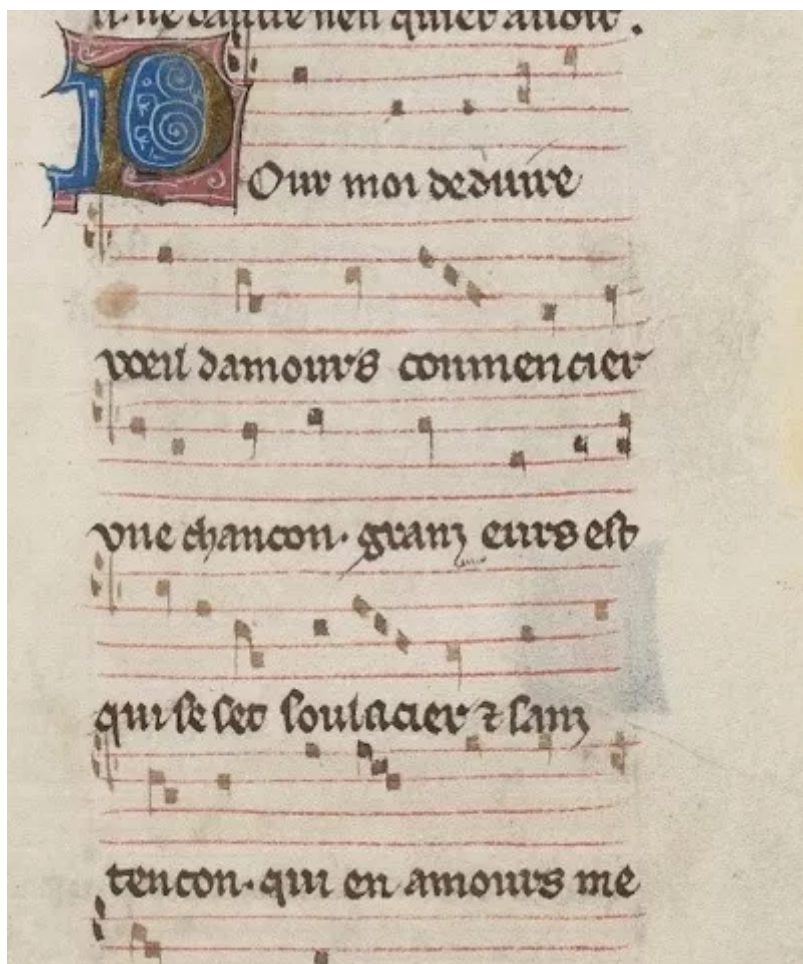 n'en quier avoir.
Pour moi deduire
voeil damours conmencier
vne chancon. granz eurs est
qui se set soulacier ⁊ sanz
tencon. qui en amours me